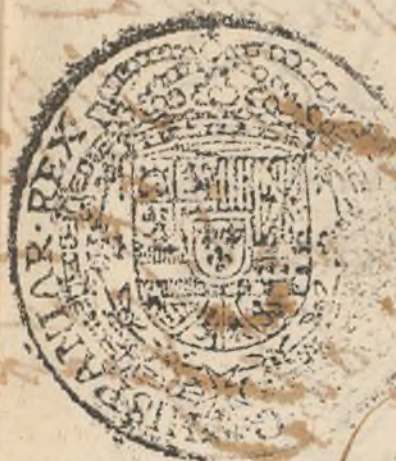 HISPANIAR·REX